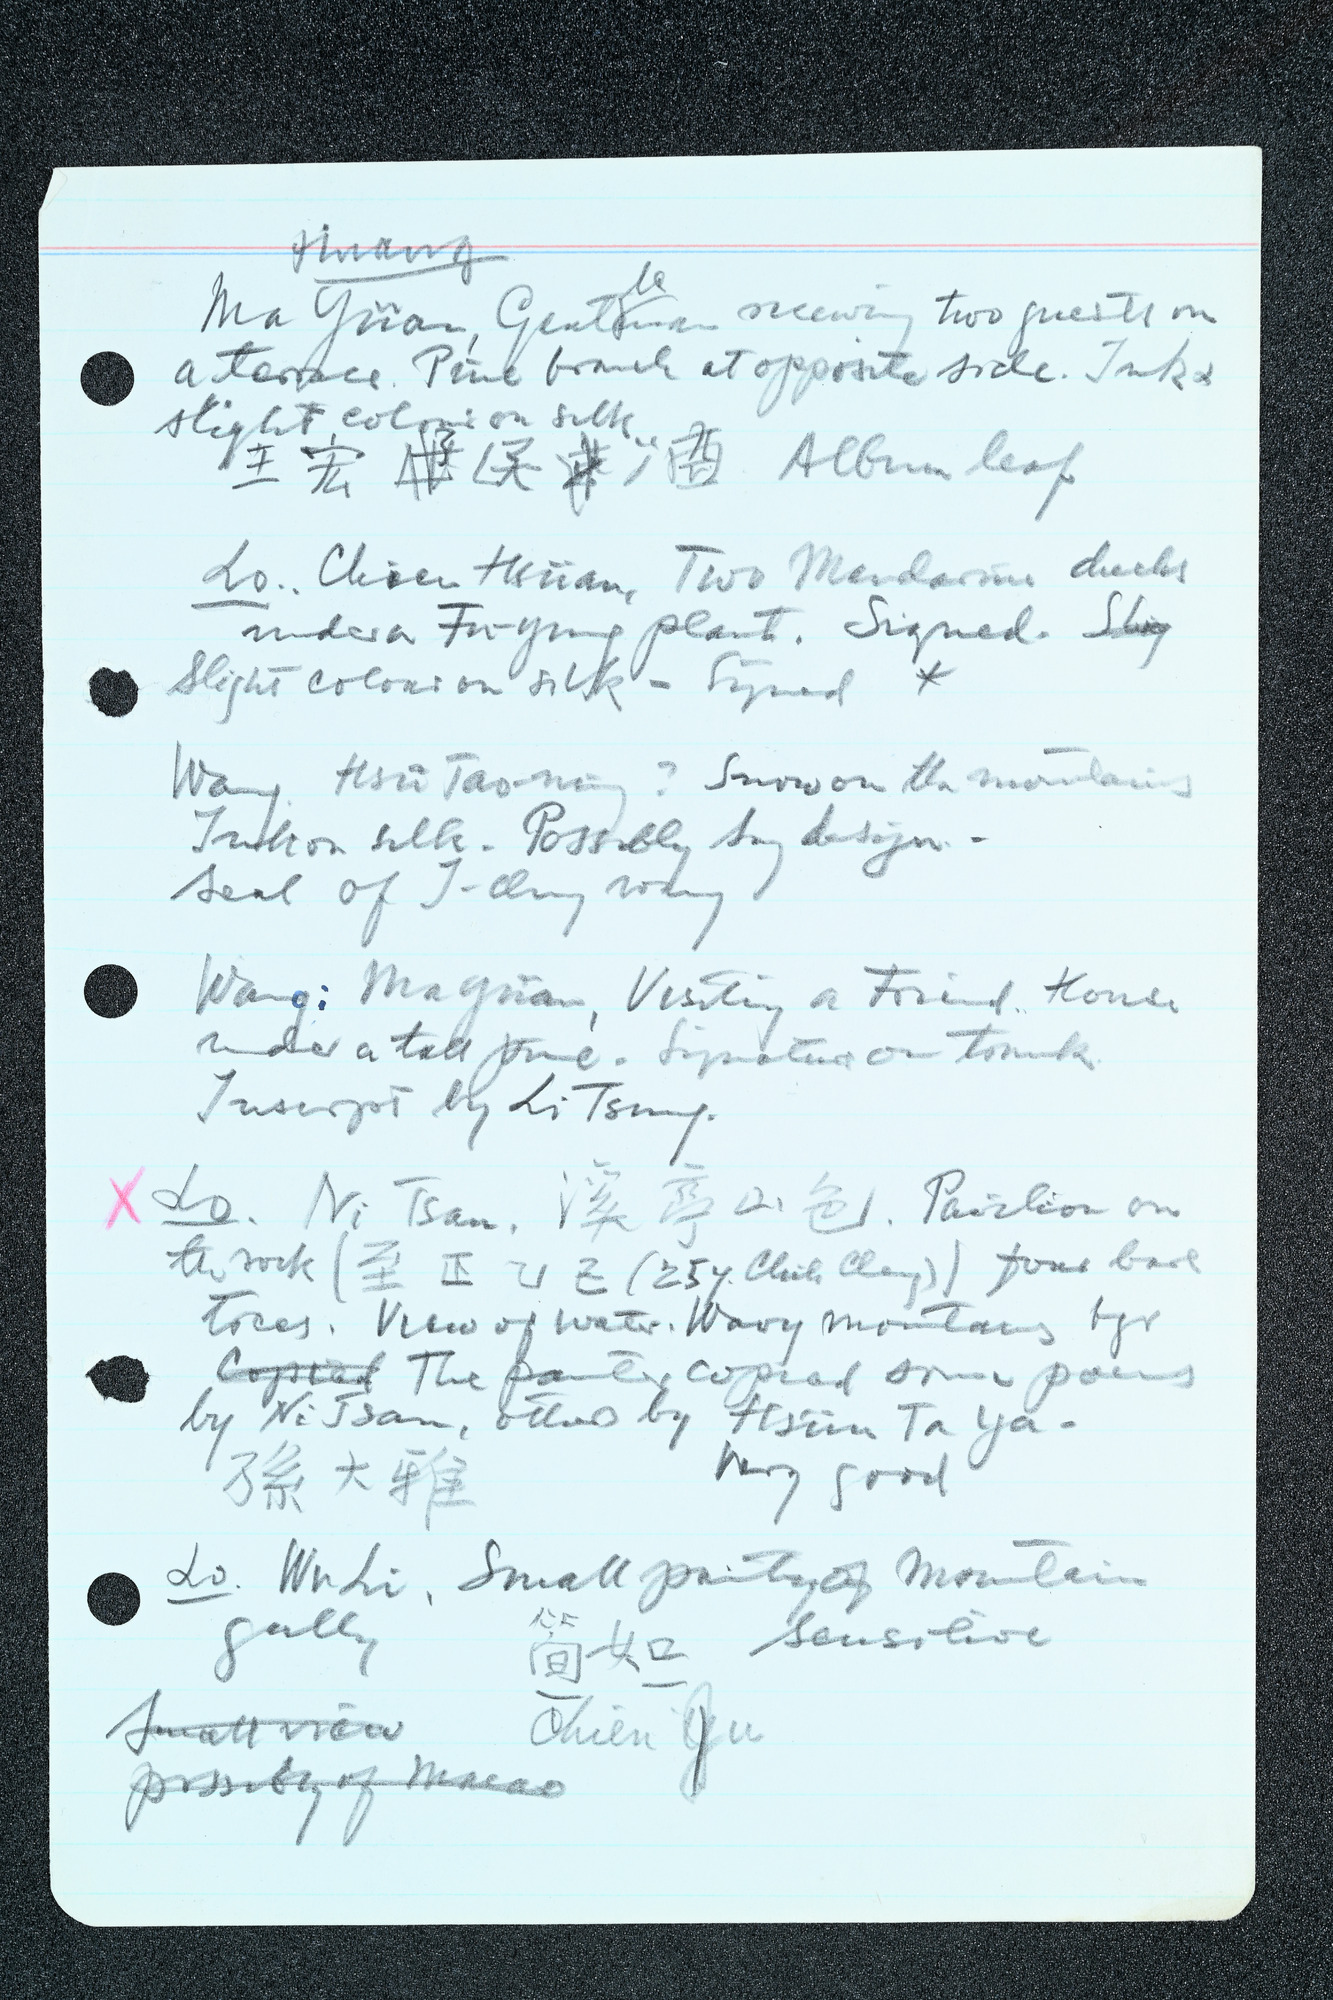 Huang
Ma Yüan, Gentleman receiving two guests on
a terrace. Pine branch at opposite side. Ink &
slight colors on silk.
王宏 侯 酒 Album leaf
Lo.. Chien Hsüan, Two Mandarin ducks
under a Fu-yung plant. Signed. Slig
slight colors on silk - Signed *
Wang. Hsü Tao-ning? Snow on the mountains
Ink on silk. Possibly Sung design. -
Seal of I-chung wang
Wang: Ma Yüan, Visiting a Friend. House
under a tall pine. Signature on trunk.
Inscript by Li Tsung.
X Lo. Ni Tsan. 溪亭山色. Pavilion on
the rock (至正乙巳 (25 y. Chih Cheng)) four bare
trees. View of water. Wavy mountains bgr
Copied The painter copied some poems
by Ni Tsan, others by Hsün Ta Ya -
孫大雅 Very good
Lo. Wu Li, Small painting of Mountain
gully 簡如 sensitive
Small view Chien Ju
possibly of Macao